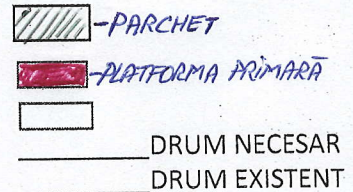 -PARCHET
-PLATFORMA PRIMARĂ
DRUM NECESAR
DRUM EXISTENT